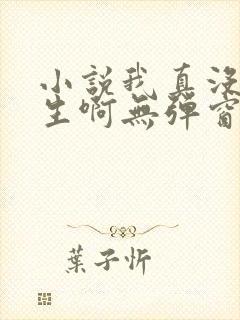 小説我真沒
生啊無彈窗
葉子忻